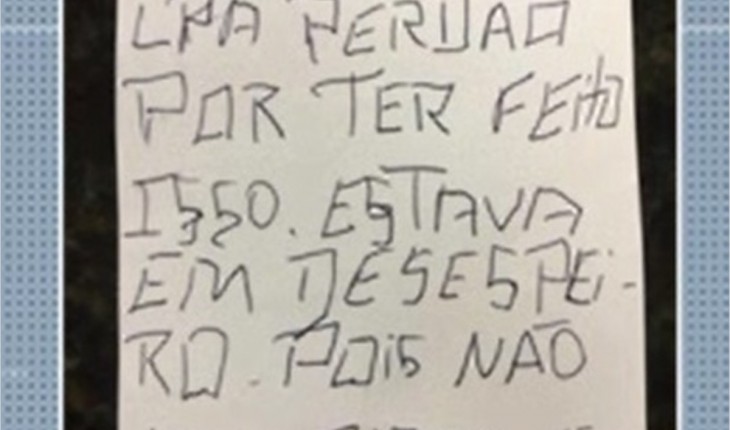 LPA PERDAO
POR TER FEito
ISSO. ESTAVA
EM DESESPEi-
RO. POiS NÃO